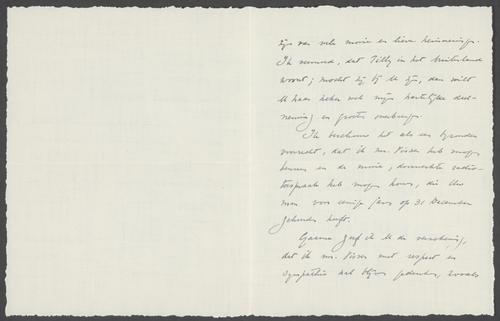 zijn van vele mooie en lieve herinneringen.
Ik vernam, dat Tilly in het buitenland
woont; mocht zij bij U zijn, dan wilt
U haar zeker ook mijn hartelijke deel-
neming en groeten overbrengen.
Ik beschouw het als een bijzonder
voorrecht, dat ik mr. Visser heb mogen
kennen en de mooie, doorwerkte radio-
toespraak heb mogen horen, die Uw
man voor enige jaren op 31 December
gehouden heeft.
Gaarne geef ik U de verzekering,
dat ik mr. Visser met respect en
sympathie zal blijven gedenken, zoals